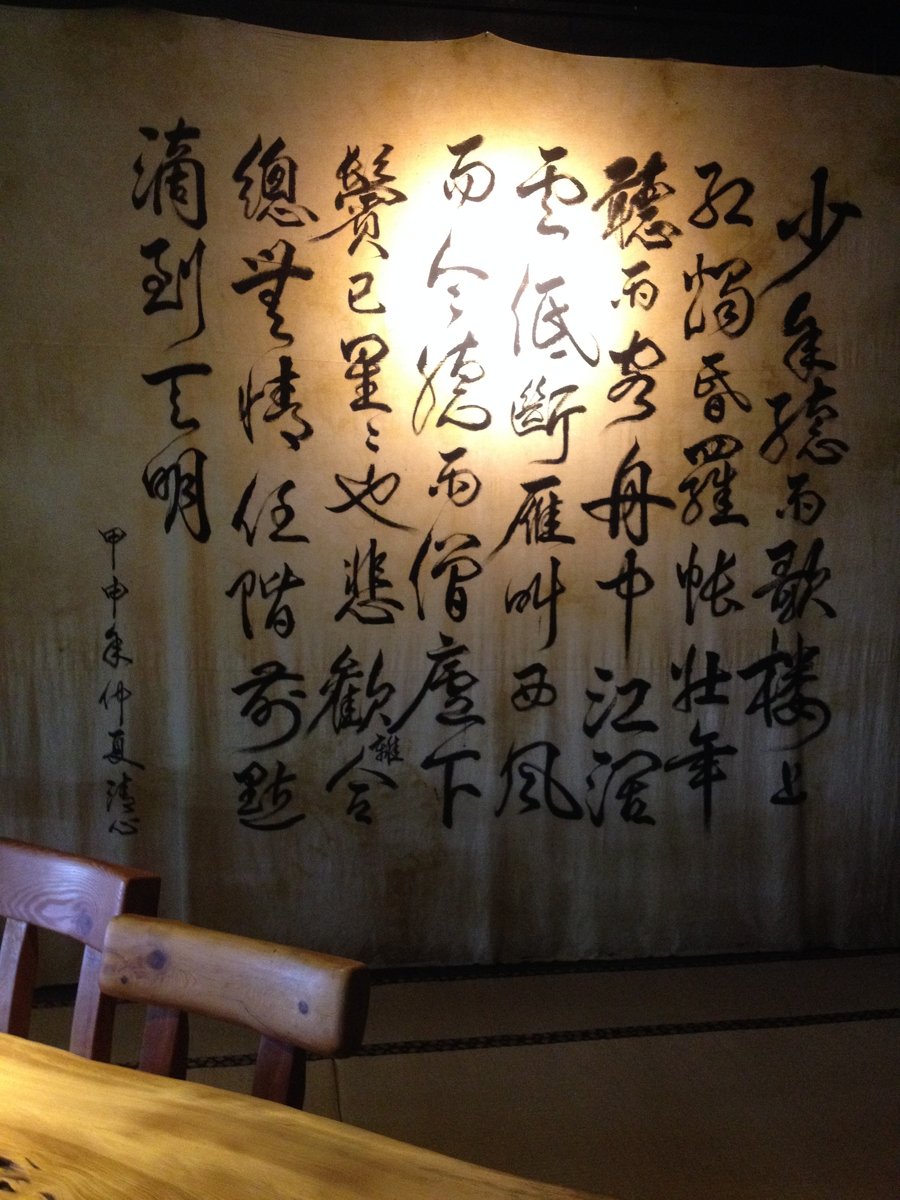 少年聽雨歌樓上
紅燭昏羅帳壯年
聽雨客舟中江闊
雲低斷雁叫西風
而今聽雨僧廬下
鬢已星〻也悲歡離合
總無情任階前點
滴到天明
甲申年仲夏清心